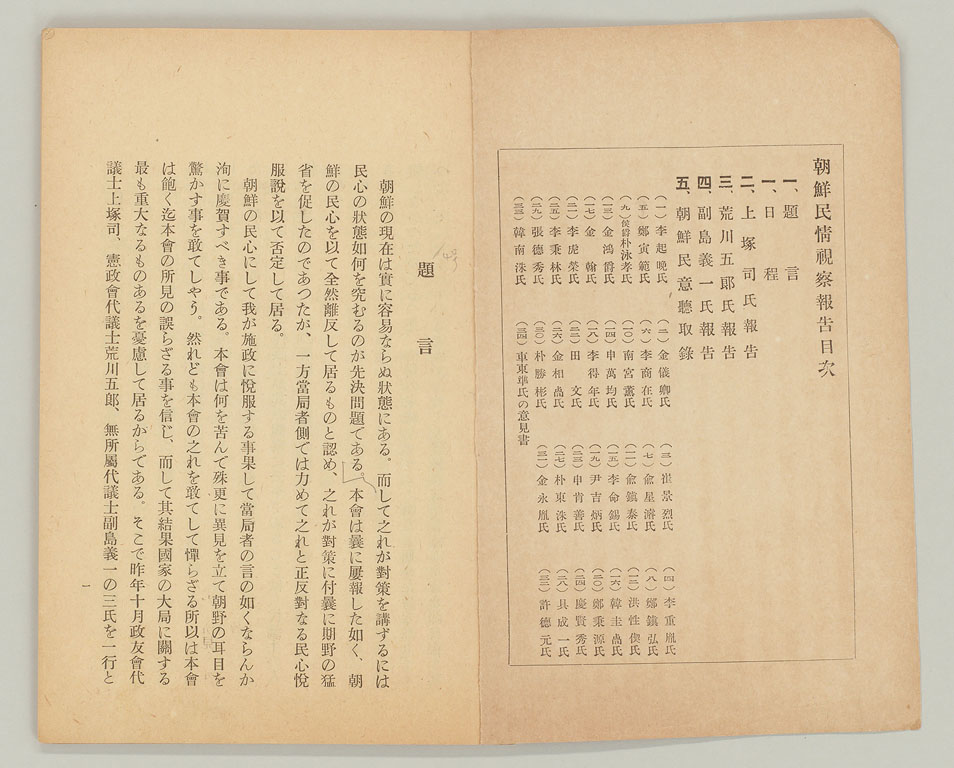 朝鮮民情視察報告目次
一、題言
一、日程
二、上塚司氏報告
三、荒川五郞氏報告
四、副島義一氏報告
五、朝鮮民意聽取錄
(一)李起晩氏 (二)金儀卿氏 (三)崔景烈氏 (四)李重胤氏
(五)鄭寅範氏 (六)李商在氏 (七)兪星濬氏 (八)鄭鎭弘氏
(九)侯爵朴泳孝氏 (一〇)南宮薰氏 (一一)兪鎭泰氏 (一二)洪性偰氏
(一三)金鴻爵氏 (一四)申萬均氏 (一五)李命錫氏 (一六)韓圭卨氏
(一七)金翰氏 (一八)李得年氏 (一九)尹吉炳氏 (二〇)鄭秉源氏
(二一)李虎榮氏 (二二)田文氏 (二三)申肯善氏 (二四)慶賢秀氏
(二五)李秉林氏 (二六)金相卨氏 (二七)朴東洙氏 (二八)具成一氏
(二九)張德秀氏 (三〇)朴勝彬氏 (三一)金永胤氏 (三二)許德元氏
(三三)韓南洙氏 (三四)車東準氏の意見書
題言
朝鮮の現在は實に容易ならぬ狀態にある。而して之れが對策を講ずるには
民心の狀態如何を究むるのが先決問題である。本會は曩に屢報した如く、朝
鮮の民心を以て全然離反して居るものと認め、之れが對策に付曩に期野の猛
省を促したのであつたが、一方當局者側では力めて之れと正反對なる民心悅
服說を以て否定して居る。
朝鮮の民心にして我が施政に悅服する事果して當局者の言の如くならんか
洵に慶賀すべき事である。本會は何を苦んで殊更に異見を立て朝野の耳目を
驚かす事を敢てしやう。然れども本會の之れを敢てして憚らざる所以は本會
は飽く迄本會の所見の誤らざる事を信じ、而して其結果國家の大局に關する
最も重大なるものあるを憂慮して居るからである。そこで昨年十月政友會代
議士上塚司、憲政會代議士荒川五郞、無所屬代議士副島義一の三氏を一行と
一